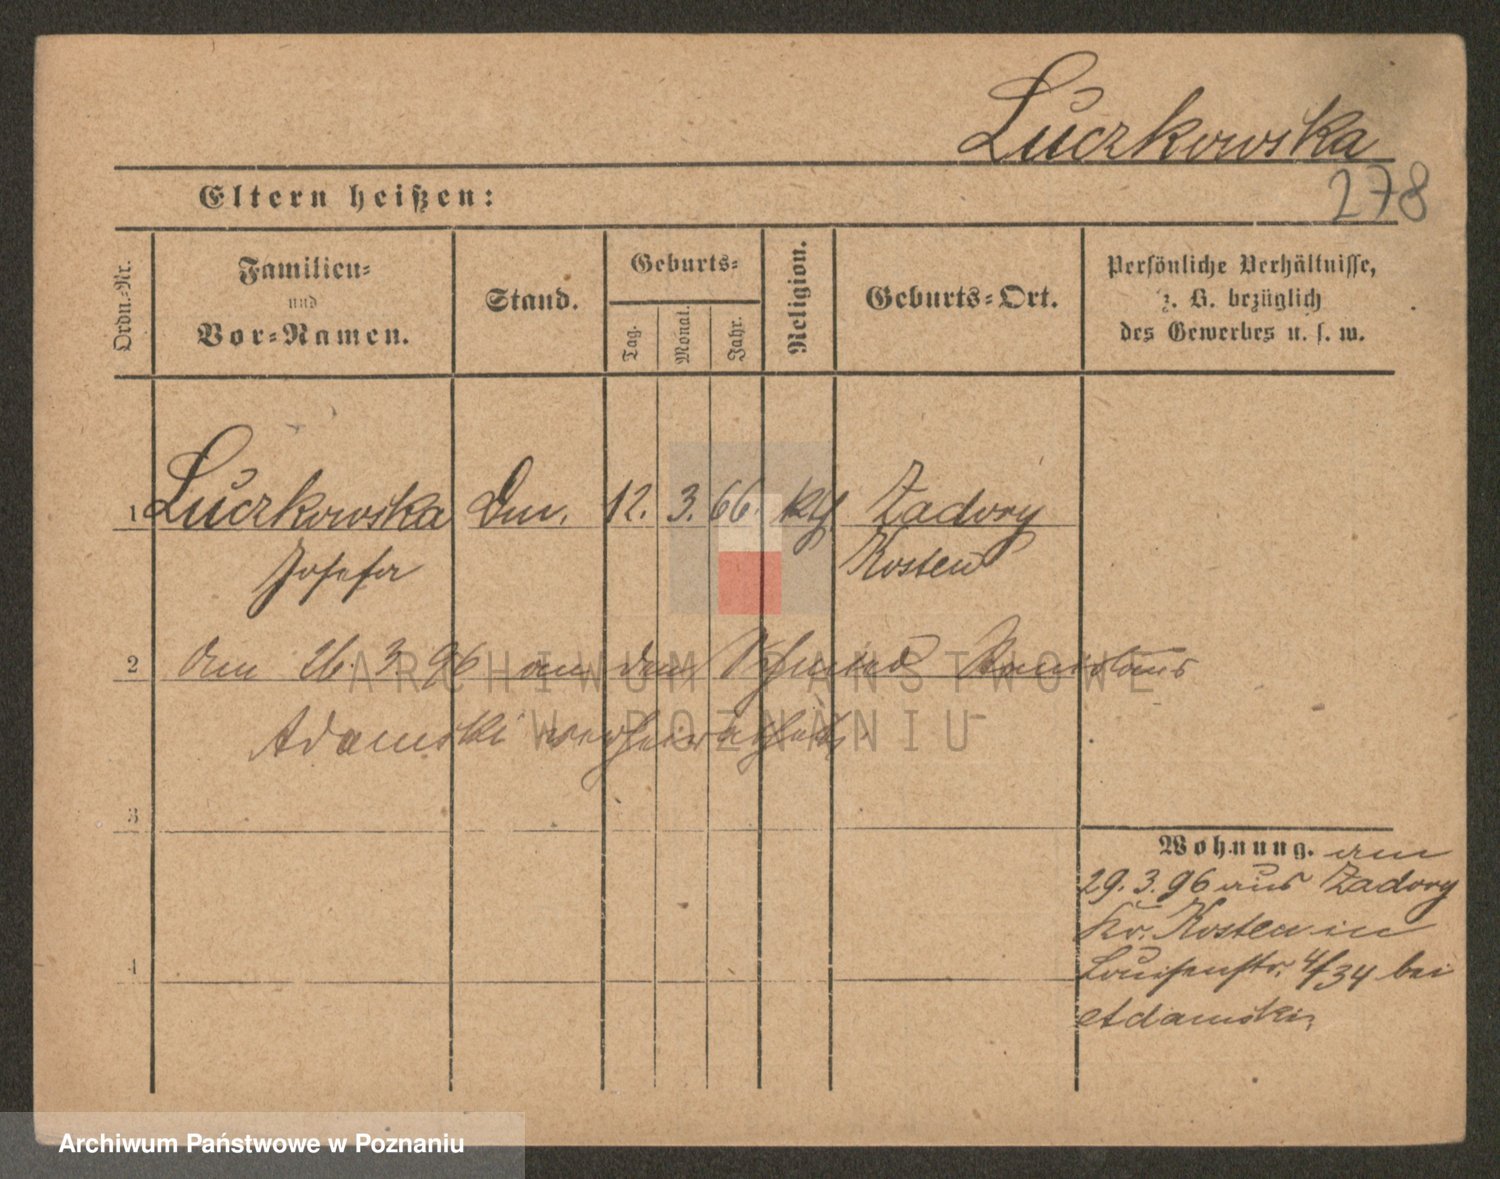 Luczkowska
278
Eltern heißen:
Ordn.-Nr.
Familien-
und
Vor-Namen.
Stand.
Geburts-
Tag.
Monat.
Jahr.
Religion.
Geburts-Ort.
Persönliche Verhältnisse,
z. B. bezüglich
des Gewerbes u. s. w.
1 Luczkowska 12. 3. 66. kth Zadory
Josefa Kosten
2 Am 26. 3. 96 an den Schmied Stanislaus
Adamski verheirathet.
ARCHIWUM PAŃSTWOWE
W POZNANIU
3
Wohnung. am
29. 3. 96 aus Zadory
Kr. Kosten in
4
Louisenstr. 4/34 bei
Adamski
Archiwum Państwowe w Poznaniu